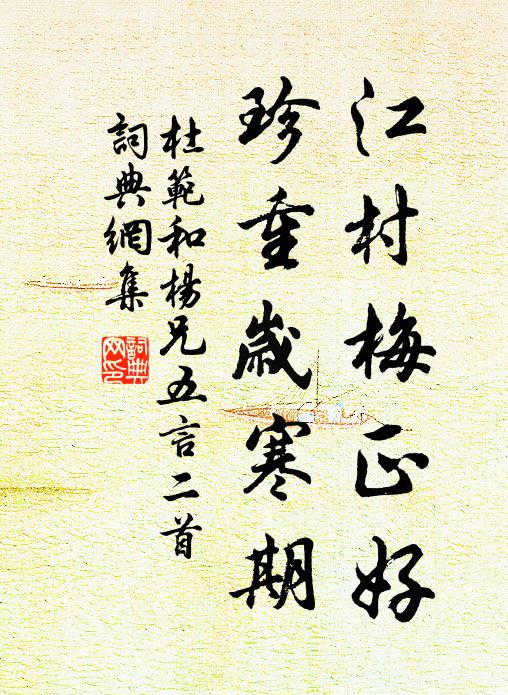 江村梅正好
珍重歲寒期
杜範和楊兄五言二首
詞典網集
詞典網印